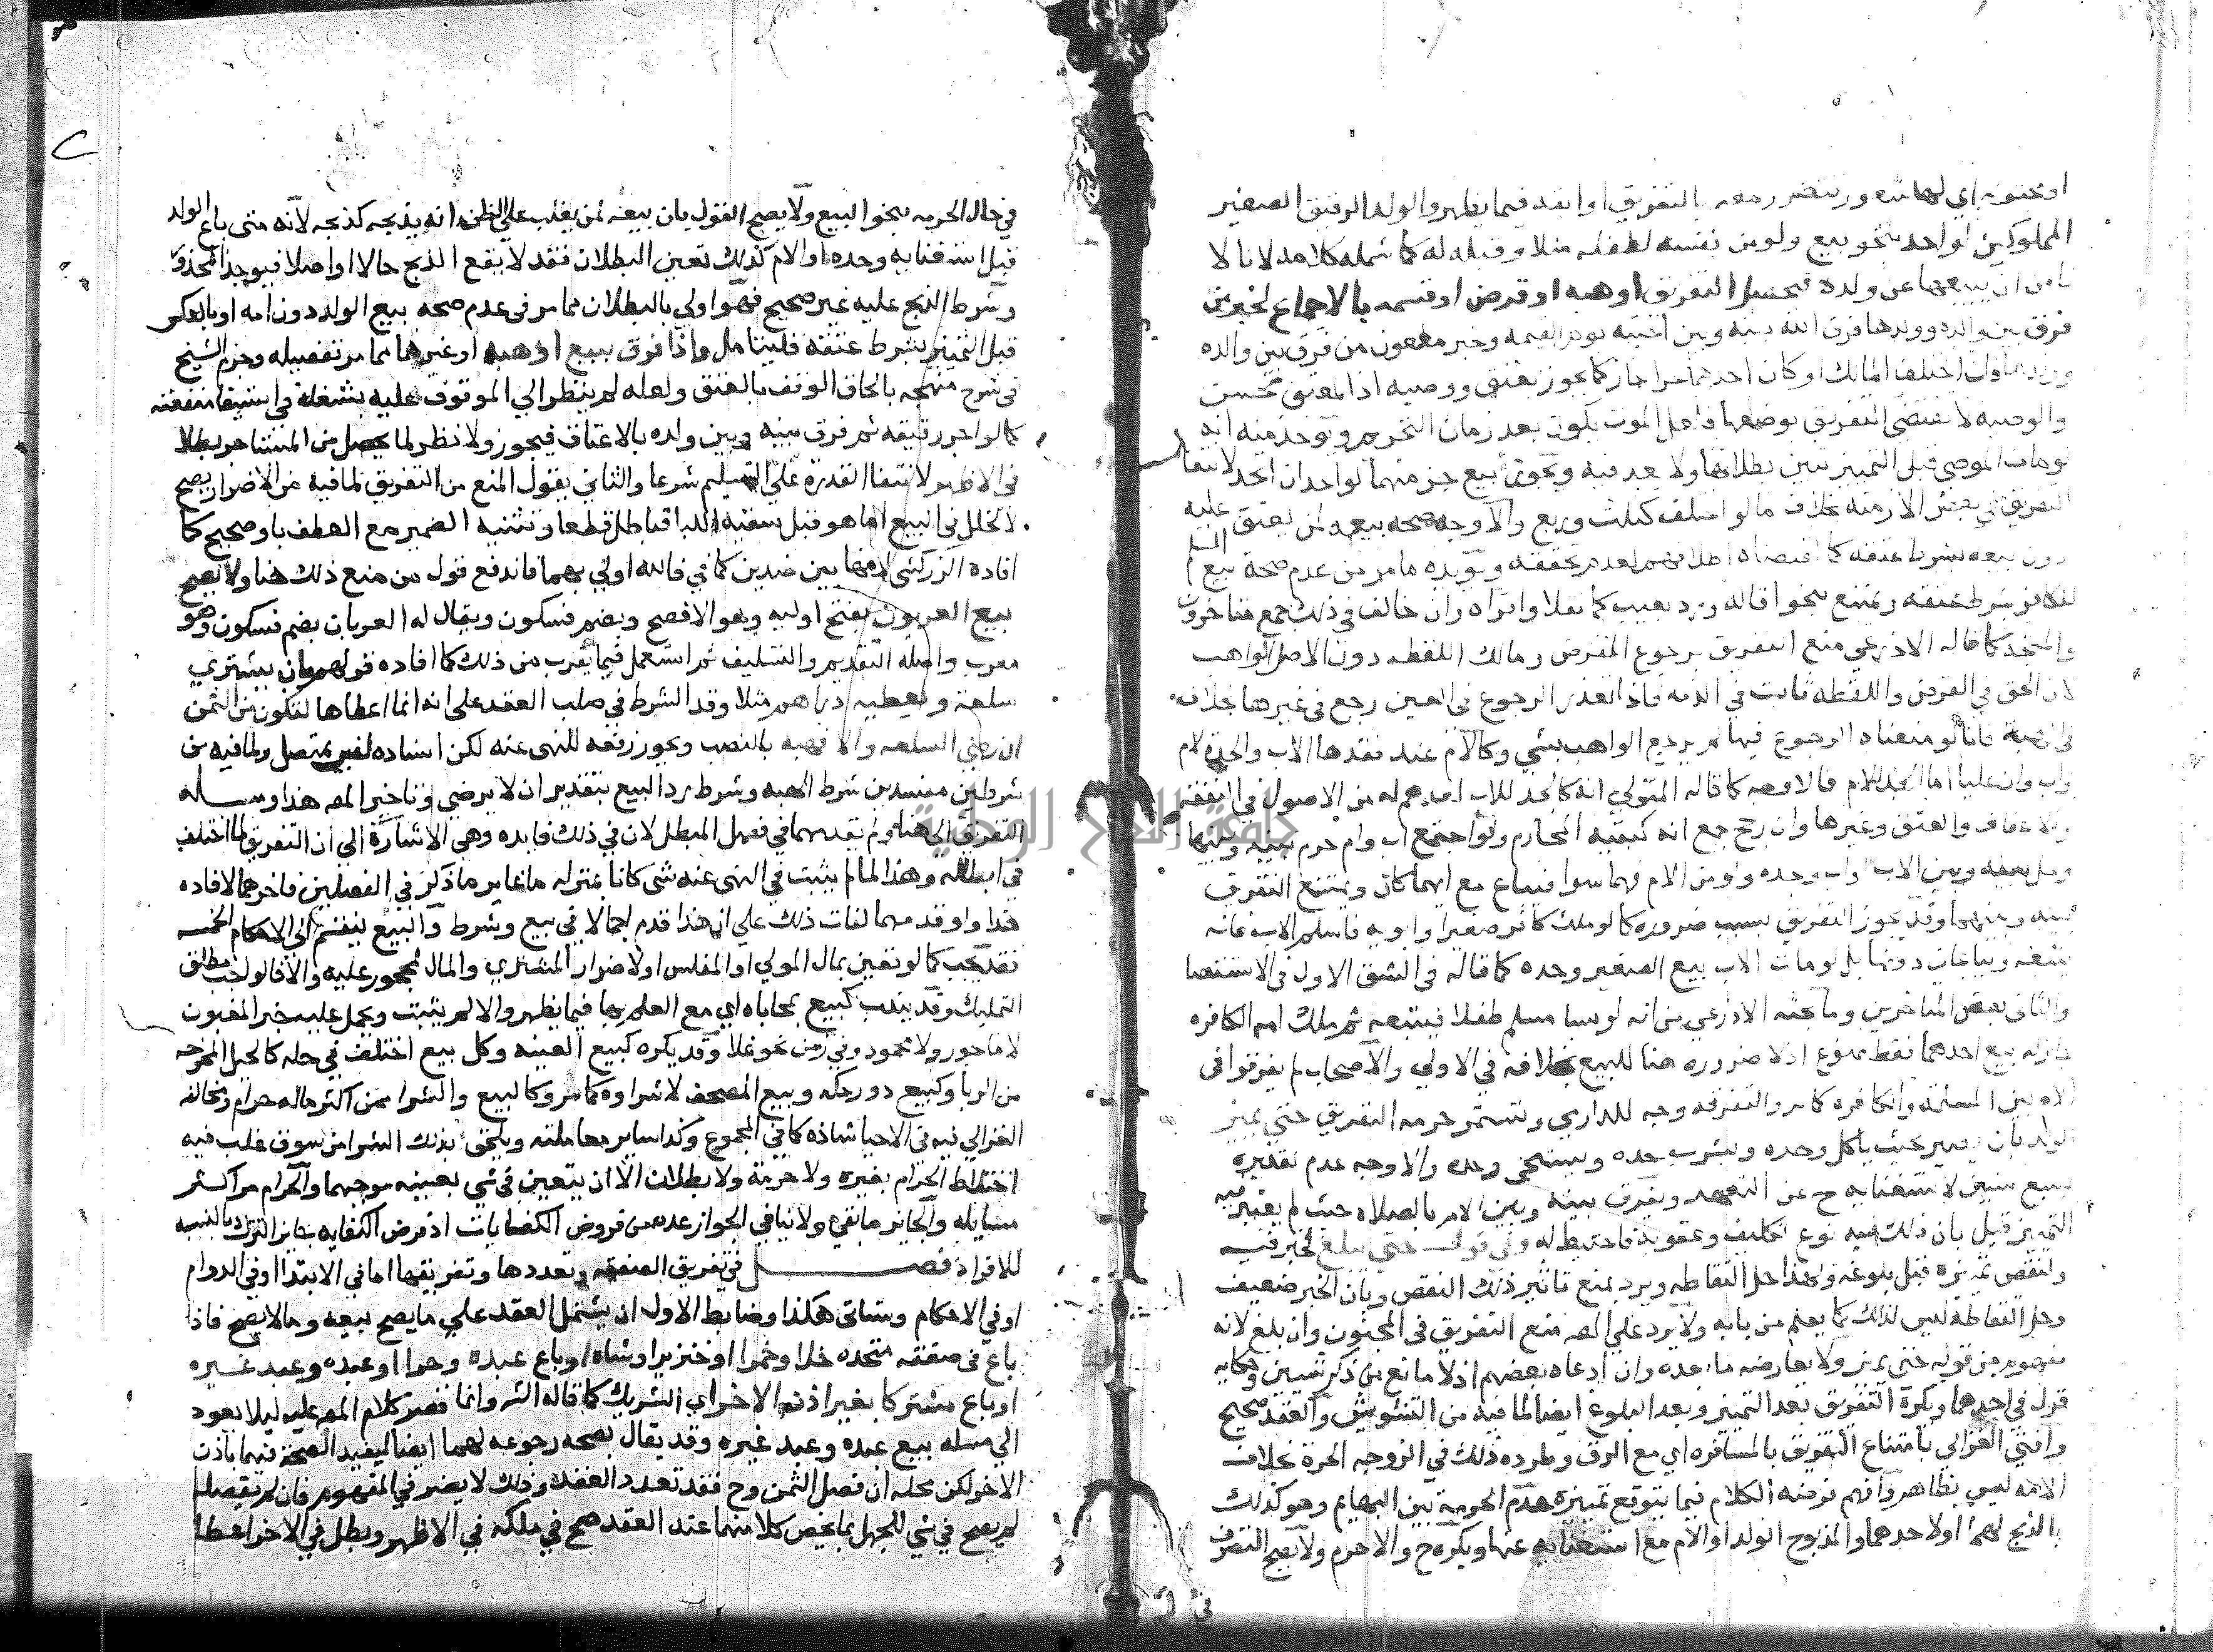 او مجنونه اي لها شعور يتضرر معه بالتفريق او ابعد فيما يظهر والولد الرقيق الصغير
المملوكين لواحد بنحو بيع ولو من نفسه لطفله مثلا وقبله له كما شمله كلامه لانا لا
نامن ان يبيعها عن ولده فيحصل التفريق او هبه او قرض او قسمه بالاجماع لخبر من
فرق بين والده وولدها فرق الله بينه وبين احبته يوم القيمه وخبر ملعون من فرق بين والده
وولدها فان اختلف المالك او كان احدهما حرا جاز كما يجوز بعتق ووصيه اذا المعتق محسن
والوصيه لا تقتضى التفريق بوضعها فلعل الموت يكون بعد زمان التحريم ويوخذ منه انه
لو مات الموصى قبل التمييز تبين بطلانها ولا بعد فيه ويجوز بيع جز منهما لواحد ان اتحد لانتفا
التفريق في بعض الازمنه بخلاف ما لو اختلف كثلث وربع والاوجه صحه بيعه لمن يعتق عليه
دون بيعه بشرط عتقه كما اقتضاه اطلاقهم لعدم تحققه ويويده ما مر من عدم صحة بيع المسلم
للكافر بشرط عتقه ويمتنع بنحو اقاله ورد بعيب كما نقلا واقراه وان خالف في ذلك جمع متاخرون
والمتجه كما قاله الاذرعي منع التفريق برجوع المقرض ومالك اللقطه دون الاصل الواهب
لان الحق في القرض واللقطه ثابت في الذمه فاذا تعذر الرجوع في العين رجع في غيرها بخلافه
في الهبة فانا لو منعناه الرجوع فيها لم يرجع الواهب بشي وكالام عند فقدها الاب والجدة لام
واب وان عليا اما الجد للام فالاوجه كما قاله المتولي انه كالجد للاب لعدهم له من الاصول في النفقه
والاعفاف والعتق وغيرها وان رجح جمع انه كبقيه المحارم ولو اجتمع اب وام حرم بينه وبينها
وحل بينه وبين الاب او اب وجده ولو من الام فهما سوا فيباع مع ايهما كان ويمتنع التفريق
بينه وبينهما وقد يجوز التفريق بسبب ضروره كما لو ملك كافر صغيرا وابويه فاسلم الاب فانه
يتبعه ويباعان دونها بل لو مات الاب بيع الصغير وحده كما قاله في الشق الاول في الاستقصا
والثاني بعض المتاخرين وما بحثه الاذرعي من انه لو سبا مسلم طفلا فيتبعه ثم ملك امه الكافره
جاز له بيع احدهما فقط ممنوع اذ لا ضروره هنا للبيع بخلافه في الاولي والاصحاب لم يفرقوا في
الام بين المسلمة والكافره كما مر والتفرقه وجه للدارمي وتستمر حرمه التفريق حتى يميز
الولد بان يصير بحيث ياكل وحده ويشرب وحده ويستنجي وحده والاوجه عدم تقديره
بسبع سنين لاستغنايه ح عن التعهد ويفرق بينه وبين الامر بالصلاة حيث لم يعتبر فيه
التمييز قبل بان ذلك فيه نوع تكليف وعقوبه فاحتيط له وفي قول حتى يبلغ لخبر فيه
ولنقص تمييزه قبل بلوغه ولهذا حل التقاطه ويرد بمنع تاثير ذلك النقص وبان الخبر ضعيف
وحل التقاطه ليس لذلك كما يعلم من بابه ولا يرد علي المص منع التفريق في المجنون وان بلغ لانه
مفهوم من قوله حتى يميز ولا يعارضه ما بعده وان ادعاه بعضهم اذ لا مانع من ذكر شيين وحكايه
قول في احدهما ويكره التفريق بعد التمييز وبعد البلوغ ايضا لما فيه من التشويش والعقد صحيح
وافتى الغزالي بامتناع التفريق بالمسافره اي مع الرق وطرده ذلك في الزوجه الحرة بخلاف
الامه ليس بظاهر وافهم فرضه الكلام فيما يتوقع تمييزه عدم الحرمه بين البهايم وهو كذلك
بالذبح لهما او لاحدهما والمذبوح الولد او الام مع استغنايه عنها ويكره ح والا حرم ولا يصح التصرف
في
في حال الحرمه بنحو البيع ولا يصح القول بان بيعه لمن يغلب علي الظن انه يذبحه كذبحه لانه متى باع الولد
قبل استغنايه وحده او الام كذلك تعين البطلان فقد لا يقع الذبح حالا او اصلا فيوجد المحذور
وشرط الذبح عليه غير صحيح فهو اولي بالبطلان مما مر في عدم صحه بيع الولد دون امه او بالعكس
قبل التمييز بشرط عتقه فليتامل واذا فرق ببيع او هبه او غيرهما مما مر تفصيله وجزم الشيخ
في شرح منهجه بالحاق الوقف بالعتق ولعله لم ينظر الي الموقوف عليه بشغله في استيفا منفعته
كما لو اجر رقيقه ثم فرق بينه وبين ولده بالاعتاق فيجوز ولا نظر لما يحصل من المستاجر بطلا
في الاظهر لانتفا القدره علي التسليم شرعا والثاني يقول المنع من التفريق لما فيه من الاضرار يصح
لا لخلل في البيع اما هو قبل سقيه اللبا فباطل قطعا وتثنيه الضمير مع العطف باو صحيح كما
افاده الزركشي لانها بين ضدين كما في فالله اولي بهما فاندفع قول من منع ذلك هنا ولا يصح
بيع العربون بفتح اوليه وهو الافصح وبضم فسكون ويقال له العربان بضم فسكون وهو
معرب واصله التقديم والتسليف ثم استعمل فيما يقرب من ذلك كما افاده قولهم بان يشتري
سلعة ويعطيه دراهم مثلا وقد الشرط في صلب العقد على انه انما اعطاها لتكون من الثمن
ان رضي السلعه والا فهبه بالنصب ويجوز رفعه للنهى عنه لكن اسناده غير متصل ولما فيه من
شرطين مفسدين شرط الهبه وشرط رد البيع بتقدير ان لا يرضي وتاخير المص هذا ومسله
التفريق الي هنا ولم يقدمهما في فصل المبطل لان في ذلك فايده وهي الاشارة الي ان التفريق لما اختلف
في ابطاله وهذا لما لم يثبت في النهى عنه شى كانا بمنزله ما غاير ما ذكر في الفصلين فاخرهما لافاده
هذا ولو قدمهما لفات ذلك علي ان هذا قدم اجمالا في بيع وشرط والبيع ينقسم الى الاحكام الخمسه
فقد يجب كما لو تعين بمال المولي او المفلس او لاضرار المشتري والمال لمحجور عليه والا فالواجب مطلق
التمليك وقد يندب كبيع بمحاباه اي مع العلم بها فيما يظهر والا لم يثبت ويحمل عليه خبر المغبون
لا ماجور ولا محمود وفي زمن نحو غلا وقد يكره كبيع العينه وكل بيع اختلف في حله كالحيل المخرجه
من الربا وكبيع دور مكه وبيع المصحف لا شراوه كما مر وكالبيع والشرا ممن اكثر ماله حرام ومخالفه
الغزالي فيه في الاحيا شاذه كما في المجموع وكذا ساير معاملته ويلحق بذلك الشرا من سوق غلب فيه
اختلاط الحرام بغيره ولا حرمة ولا بطلان الا ان يتعين في شي بعينه موجبهما والحرام مر اكثر
مسايله والجايز ما بقي ولا ينافي الجواز عده من فروض الكفايات اذ فرض الكفايه جايز الترك بالنسبه
للافراد فصل في تفريق الصفقه وتعددها وتفريقها اما في الابتدا او في الدوام
او في الاحكام وستاتى هكذا وضابط الاول ان يشتمل العقد علي ما يصح بيعه وما لا يصح فاذا
باع في صفقه متحده خلا وخمرا او خنزيرا وشاة او باع عبده وحرا او عبده وعبد غيره
او باع مشتركا بغير اذن الاخر اي الشريك كما قاله الش وانما قصر كلام المص عليه ليلا يعود
الي مسله بيع عبده وعبد غيره وقد يقال بصحه رجوعه لهما ايضا ليفيد الصحة فيما باذن
الاخر لكن محله ان فصل الثمن وح فقد تعدد العقد وذلك لا يضر في المفهوم فان لم يفصله
لم يصح في شي للجهل بما يخص كلا منهما عند العقد صح في ملكه في الاظهر وبطل في الاخر اعطا